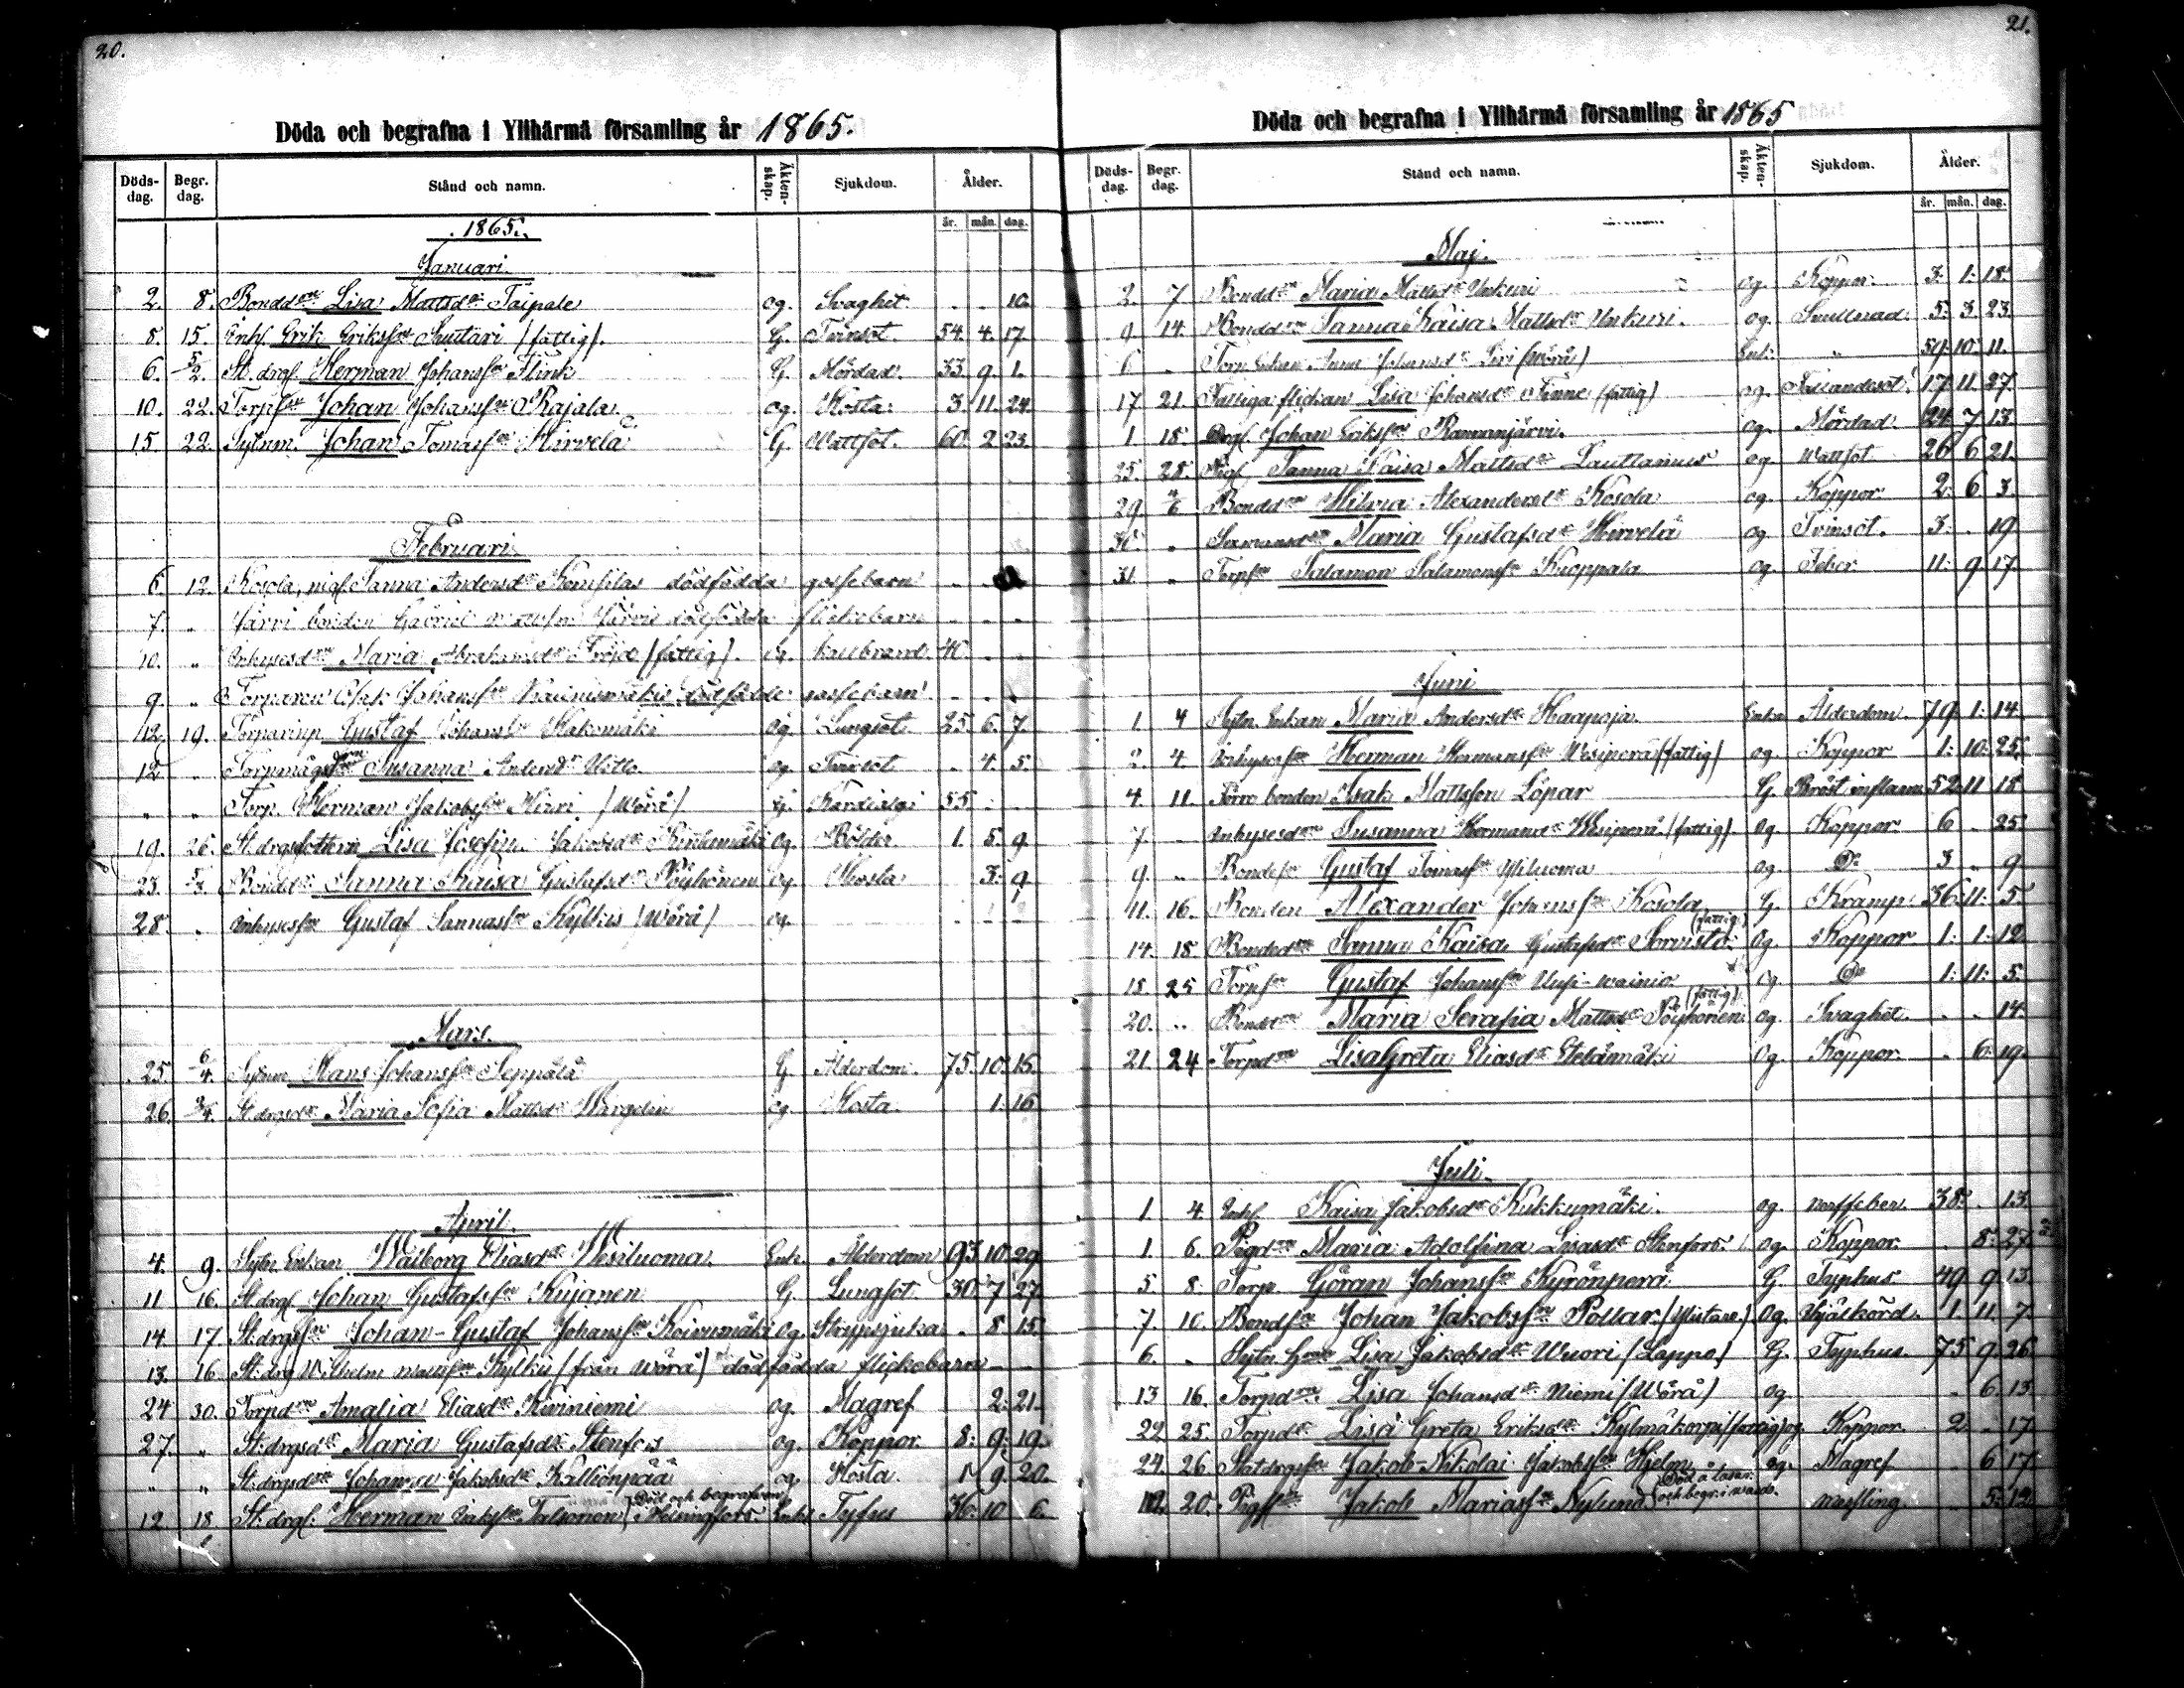 20.
Döda och begrafna i Ylihärmä församling år 1865.
Döds-dag. Begr. dag. Stånd och namn. Äkten-skap. Sjukdom. Ålder.
år. mån. dag.
1865.
Januari.
2. 8. Bondd:en Lisa Mattsd:r Taipale og. Svaghet. 10.
8. 15. Inh. Erik Eriksson Suutari (fattig). G. Tvinsot. 54. 4. 17.
6. 5/2. St. drgl. Herman Johansson Flink G. Mördad. 33. 9. 1.
10. 22. Torps:n Johan Johansson Rajala. og. Hosta. 3. 11. 24.
15. 22. Sytnm. Johan Tomasson Hirvelä G. Wattsot. 60. 2. 23.
Februari
6. 12. Kosola, pigl. Sanna Andersd:r dödfödda gossebarn
7. " Järvi bonden Gabriel Järvis dödfödda flickebarn
10. " Inhysesd:n Maria Abrahamsd:r (fattig). og. kallbrand. 40.
9. " Torparen Isak Johansson dödfödde gossebarn
12. 19. Gustaf Johansson Kakomäki og. Lungsot. 25. 6. 7.
12 " Susanna Andersd:r og. Tvinsot . 4. 5.
" " Torp. Herman Jakobsson (Wörå) G. 55
19. 26. St. drgsdottern Lisa Josefin Jakobsd:r og. Bölder. 1. 5. 9.
23. 5/3. Bondd:r Sanna Kaisa Gustafsd:r Pöyhönen og. Hosta 3. 9
28. " Inhyses:n Gustaf Sannasson Kylkis (Wörå) og.
Mars.
25. 6/4. Sytnm Hans Johansson Seppälä G. Ålderdom. 75. 10. 15.
26. 3/4. St. drgsd:r Maria Sofia Mattsd:r Wirgelin og. Hosta. 1. 16
April.
4. 9. Sytn. Enkan Walborg Eliasd:r Wesiluoma. Enk. Ålderdom 93. 10. 29
11 16. St. drgl. Johan Gustafsson Kujanen G. Lungsot. 30. 7. 27.
14. 17. St. drgs:n Johan-Gustaf Johansson Koivumäki og. Strypsjuka . 8. 15.
13. 16 St. drg Wilhelm Mattsson Kylkis (från Wörå) dödfödda flickebarn
24 30. Torpd:n Amalia Eliasd:r Kiviniemi og. Magref 2. 21.
27. " St. drgsd:r Maria Gustafsd:r Stenfors og. Koppor. 8. 9. 19.
" " St. drgsd:r Johanna Jakobsd:r Kalliönpää og. Hosta. 1. 9. 20.
12 18 St. drgl. Herman Isaks:n Talvonen (Död och begrafven i Helsingfors Enkl. Tyfus 36. 10 6.
21.
Döda och begrafna i Ylihärmä församling år 1865
Döds-dag. Begr. dag. Stånd och namn. Äkten-skap. Sjukdom. Ålder.
år. mån. dag.
Maj.
2. 7 Bondd:n Maria Mattsd:r Unkuri og. Koppor. 3. 1. 18.
9. 14. Bondd:n Sanna Kaisa Mattsd:r Unkuri. og. Svullnad. 5. 3. 23
6 " Torp. Enkan Anna Johansd:r (Wörå) Enk. " 59. 10. 11.
17 21. Fattiga flickan Lisa Johansd:r Finne (fattig) og. Fallandesot. 17. 11. 27.
1. 18. Drgl. Johan Eriksson Rannanjärvi. og. Mördad. 24. 7 13
25. 28. Pigl. Sanna Kaisa Mattsd:r Lauttamus og. Wattsot 26 6 21.
29 4/6 Bondd:n Hilma Alexandersd:r Kosola og. Koppor. 2. 6 3
30. " Maria Gustafsd:r Hirvelä og. Tvinsot. 3. . 19
31. " Torps:n Salamon Salamonsson Kuoppala og. Feber 11. 9 17
Juni
1. 4 Sytn. Enkan Maria Andersd:r Haapoja. Enka Ålderdom. 79. 1. 14
2. 4. Inhyses:n Herman Hermansson Wesiperä (fattig) og. Koppor 1. 10. 25.
4. 11. Förra bonden Isak Mattsson Löpar G. Bröst inflamm. 52 11 18
7. " Inhysesd:n Susanna Hermansd:r Wesiperä (fattig) og. Koppor. 6 . 25.
9. " Bondes:n Gustaf Tomasson Yliluoma og. D:o 3 " 9
11. 16. Bonden Alexander Johansson Kosola. G. Kramp. 36. 11. 5.
14. 18. Bondd:n Sanna Kaisa Gustafsd:r Sorvisto. (fattig) og. Koppor 1. 1. 12
18. 25 Torps:n Gustaf Johansson Uusi-wainio og. D:o 1. 11. 5.
20. " Bondd:n Maria Serafia Mattsd:r Pöyhönen. (fattig) og. Svaghet. . . 14.
21. 24 Torpd:n Lisa Greta Eliasd:r Etelämäki og. Koppor. . 6. 19.
Juli.
1. 4. Inh. Kaisa Jakobsd:r Kukkumäki. og. nerffeber. 38. . 13
1. 6. Pigd:n Maria Adolfina Lisasd:r Stenfors. og. Koppor. . 8. 27
5. 8. Torp. Göran Johansson Kyrönperä. G. Typhus. 49. 9. 13.
7. 10. Bonds:n Johan Jakobsson Pollar. (Ylistaro.) og. Ihjälkörd. 1. 11. 7.
6. " Sytn. H. Lisa Jakobsd:r Wuori (Lappo.) G. Typhus. 75 9 26
13 16. Torpd:n Lisa Johansd:r Niemi (Wörå) og. 6 13
22 25. Torpd:r Lisa Greta Eriksd:r Kylmäkorpi (fattig) og. Koppor. 2. . 17.
24. 26 Statdrgs:n Jakob-Nikolai Jakobsson Hjelm og. Magref 6 17
12. 20. Pigs:n Jakob Mariasson Nylund. (Död å lasar. och begr. i 5. 12.